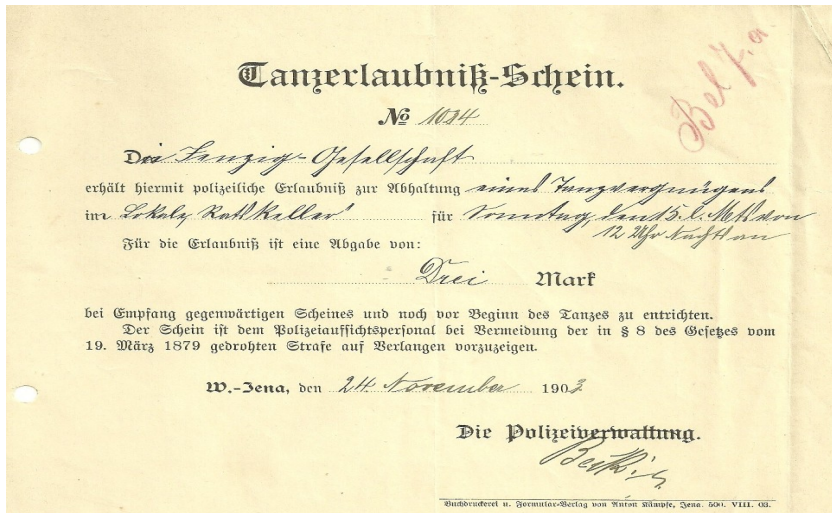 Bel 7.a.
Tanzerlaubniß-Schein.
No 1024
Die Gesellschaft
erhält hiermit polizeiliche Erlaubniß zur Abhaltung eines Tanzvergnügens
im Lokale „Ratskeller" für Sonntag, den 15. l. Mts von
12 Uhr Nachts an
Für die Erlaubniß ist eine Abgabe von:
Drei Mark
bei Empfang gegenwärtigen Scheines und noch vor Beginn des Tanzes zu entrichten.
Der Schein ist dem Polizeiaufsichtspersonal bei Vermeidung der in § 8 des Gesetzes vom
19. März 1879 gedrohten Strafe auf Verlangen vorzuzeigen.
W.-Jena, den 24 November 1903
Die Polizeiverwaltung.
Buchdruckerei u. Formular-Verlag von Anton Kämpfe, Jena. 500. VIII. 03.